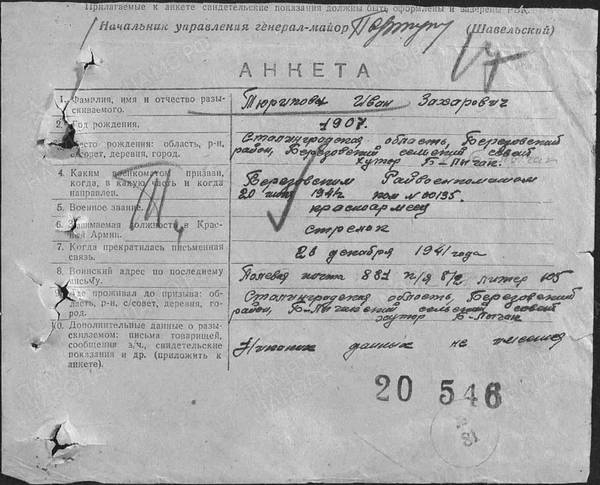 Прилагаемые к анкете свидетельские показания должны быть оформлены и заверены РВК.
Начальник управления генерал-майор (Шавельский)
АНКЕТА
1. Фамилия, имя и отчество разы-
скиваемого.
Иван Захарович
2. Год рождения.
1907.
место рождения: область, р-н,
с/совет, деревня, город.
Сталинградская область, Березовский
район, Березовский сельский совет
хутор Б-Лычак.
4. Каким военкоматом призван,
когда, в какую часть и когда
направлен.
Березовским Райвоенкоматом
20 1941г. ком №00135.
5. Воинское звание.
красноармеец
6. Занимаемая должность в Крас-
ной Армии.
стрелок
7. Когда прекратилась письменная
связь.
26 декабря 1941 года
8. Воинский адрес по последнему
письму.
Полевая почта 881 п/я 8/2 литер 105
9. Где проживал до призыва: об-
ласть, р-н, с/совет, деревня, го-
род.
Сталинградская область, Березовский
район, Б-Лычакский сельский совет
хутор Б-Лычак
10. Дополнительные данные о разы-
скиваемом: письма товарищей,
сообщения в/ч., свидетельские
показания и др. (приложить к
анкете).
Никаких данных не имеется
20 546